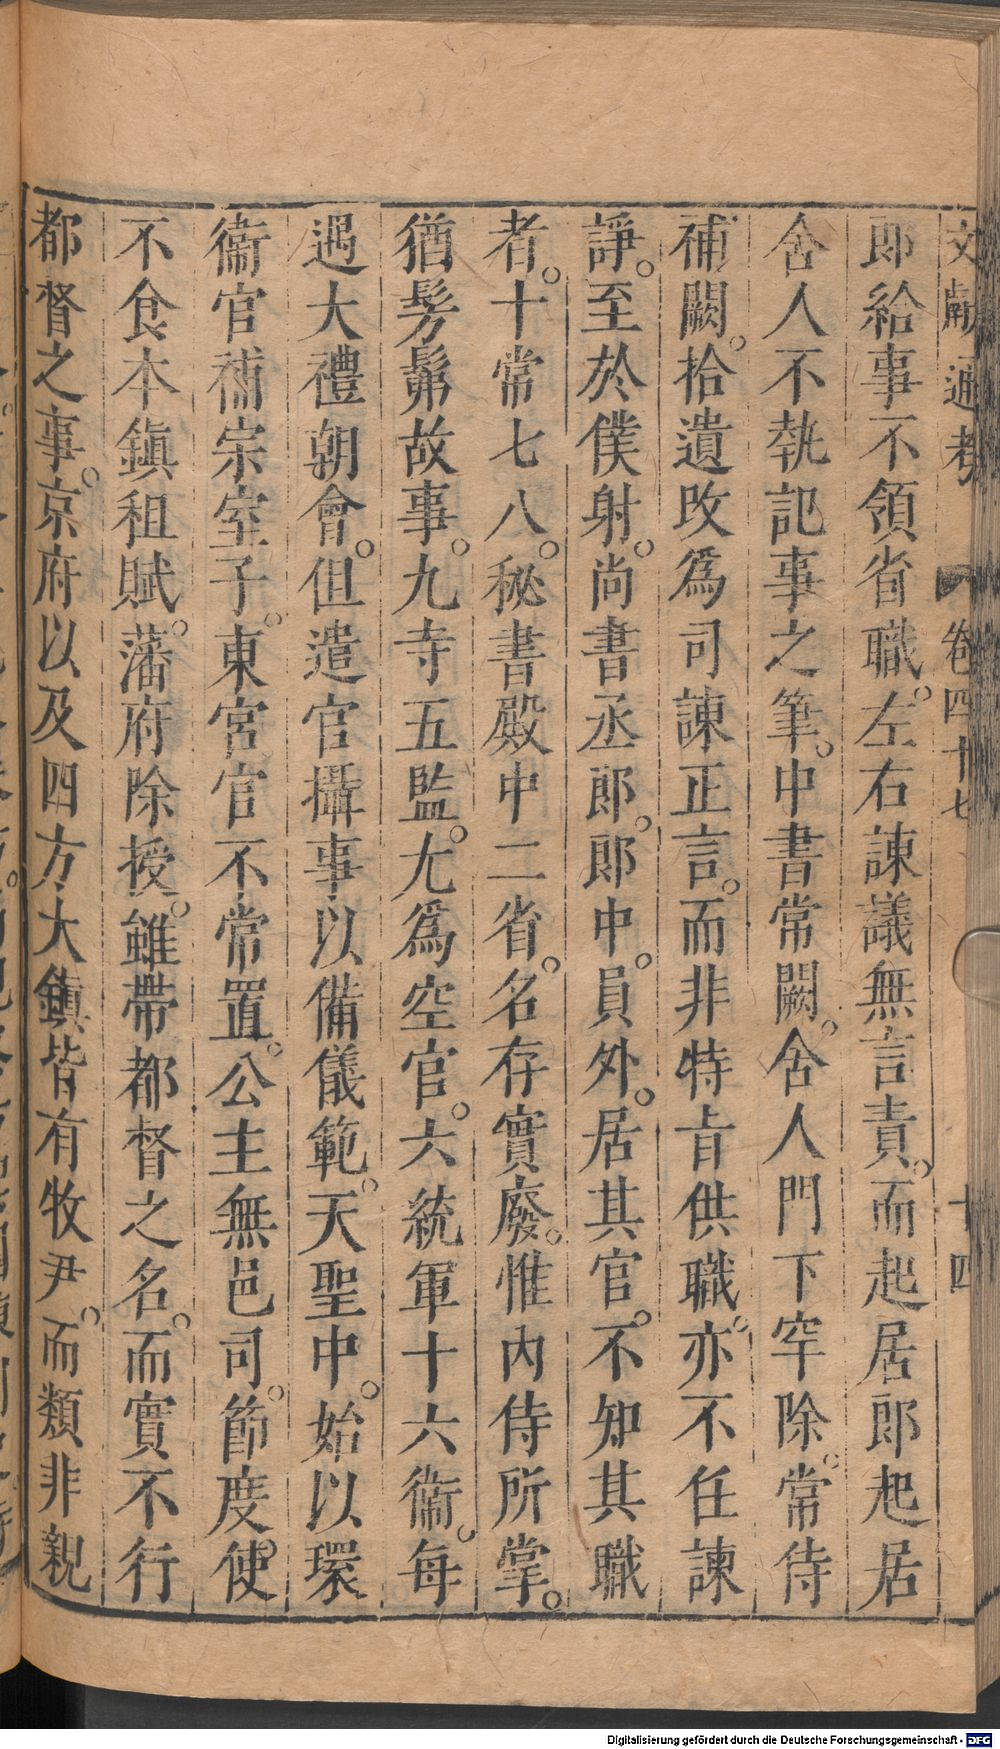 文獻通考 卷四十七 十四
郎給事不領省職。左右諫議無言責。而起居郎起居
舍人不執記事之筆。中書常闕。舍人門下罕除。常侍
補闕。拾遺改爲司諫正言。而非特旨供職。亦不任諫
諍。至於僕射。尚書丞郎。郎中。員外。居其官。不知其職
者。十常七八。秘書殿中二省。名存實廢。惟內侍所掌。
猶髣髴故事。九寺五監。尤爲空官。六統軍十六衞。每
遇大禮朝會。但遣官攝事以備儀範。天聖中。始以環
衞官補宗室子。東宮官不常置。公主無邑司。節度使
不食本鎭租賦。藩府除授。雖帶都督之名。而實不行
都督之事。京府以及四方大鎭皆有牧尹。而類非親
Digitalisierung gefördert durch die Deutsche Forschungsgemeinschaft - DFG